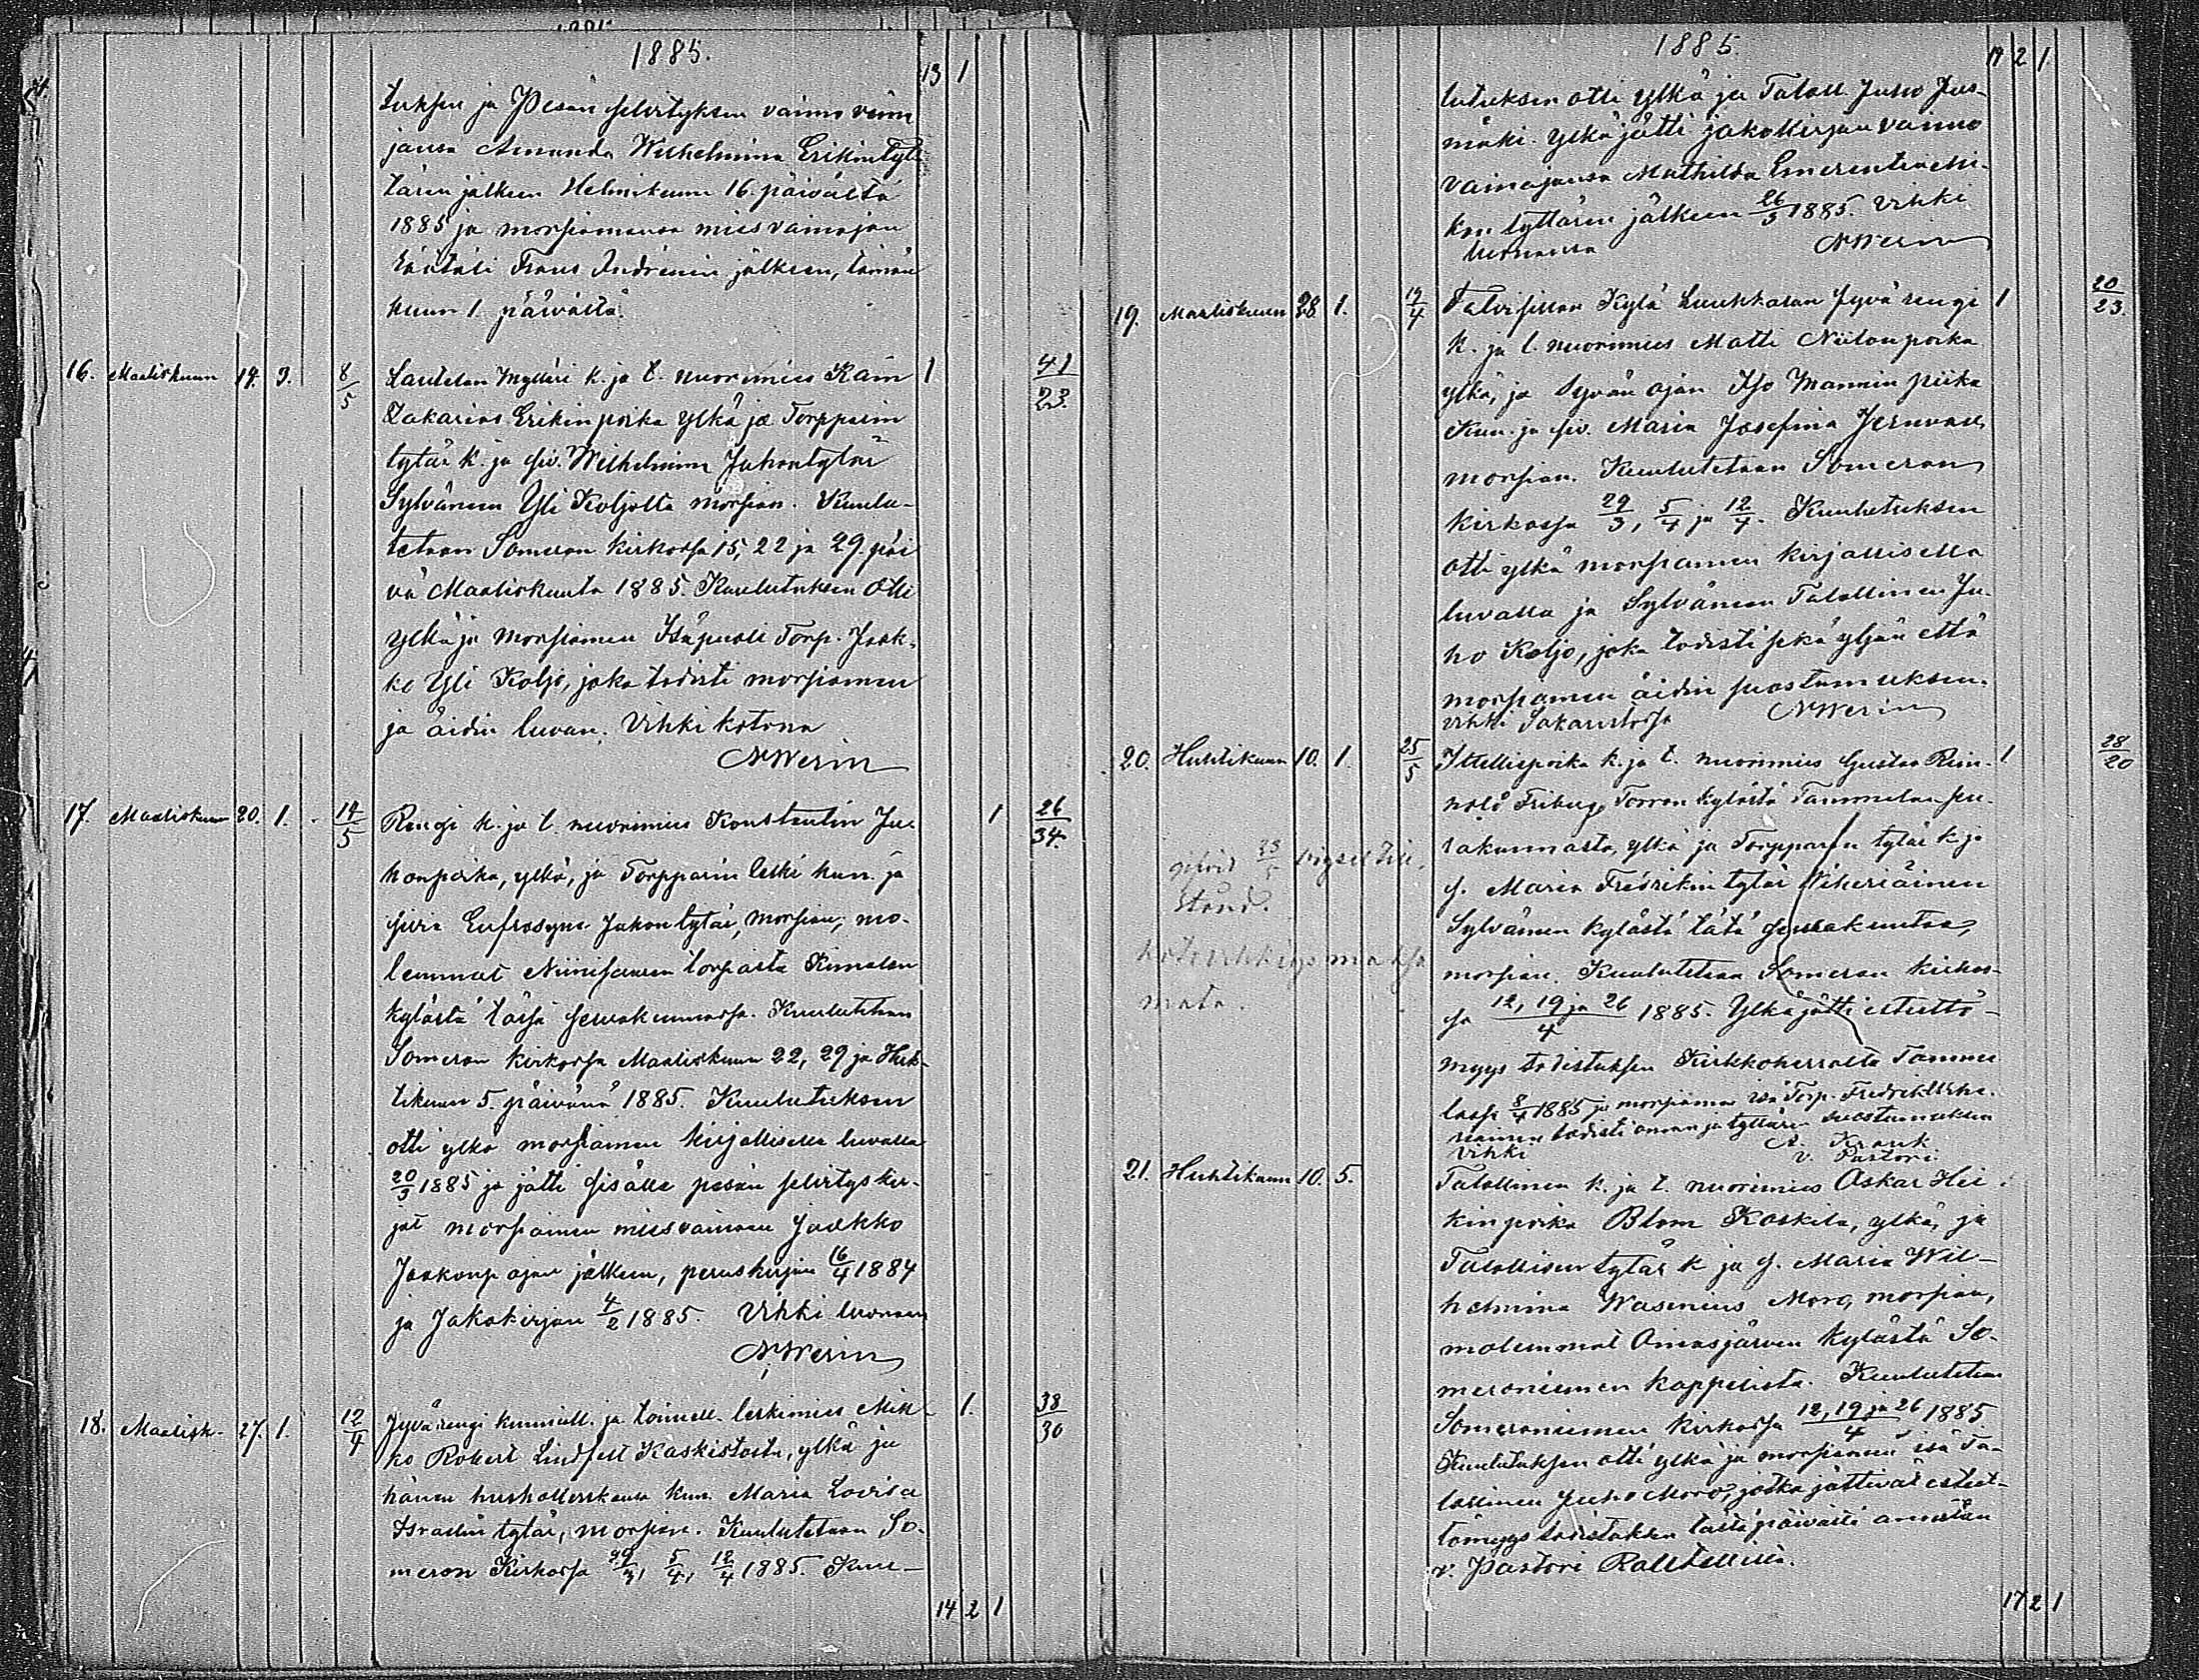 1885.
13 1
tuksen ja Pesän selvityksen vaimo vain
jansa Amanda Wilhelmina Erikintyt
tären jälkeen Helmikuun 16. päivältä
1885 ja morsiamensa mies vainajan
Frans Andrénin jälkeen, tämän
kuun 1. päivältä.
16. Maaliskuun 14. 3. 8/5 Lautelan Mylläri k. ja t. nuorimies Kain 1 41/23.
Zakarias Erikinpoika ylkä ja Torpparin
tytär k. ja siv. Wilhelmina Juhontytär
Sylvänen Yli Koljolta morsian. Kuulu-
tetaan Someron kirkossa 15, 22 ja 29. päi
vä Maaliskuuta 1885. Kuulutuksen otti
ylkä ja morsiamen Isäpuoli Torp. Jaak-
ko Yli Koljo, joka todisti morsiamen
ja äidin luvan. Vihki kotona
N Werin
17. Maaliskuun 20. 1. 14/5 Rengi k. ja t. nuorimies Konstantin Ju- 1 26/34.
honpoika, ylkä, ja Torpparin leski kun. ja
siviä Eufrosyne Jakontytär, morsian, mo-
lemmat Niinisaaren torpasta Kimalan
kylästä tässä seurakunnassa. Kuulutetaan
Someron kirkossa Maaliskuun 22, 29 ja Huh-
tikuun 5. päivänä 1885. Kuulutuksen
otti ylkä morsiamen kirjallisella luvalla
20/3 1885 ja jätti sisälle pesän selvityskir-
jat morsiamen miesvainaan Jaakko
Jaakonp ojan jälkeen, peruskirjan 16/4 1884
ja Jakokirjan 4/2 1885. Vihki luonaan
N Werin
18. Maalisk. 27. 1. 12/4 Jyvärengi kunniall. ja toimell. leskimies Mik- 1. 38/30
ko Robert Lindfelt Kaskistosta, ylkä ja
hänen hushollerskansa kun. Maria Lovisa
Israelin tytär, morsian. Kuulutetaan So-
meron Kirkossa 29/3, 5/4, 12/4 1885. Kuu-
14 2 1
1885.
14 2 1
lutuksen otti ylkä ja Taloll. Juho Jus-
mäki. Ylkä jätti jakokirjan vaimo
vainajansa Mathilda Emerentia Mi-
kon tyttären jälkeen 26/3 1885. Vihki
luonansa N Werin
19. Maaliskuun 28. 1. 19/4 Talpillan Kylä Luukkalan Jyvä rengi 1 20/23.
k. ja t. nuorimies Matti Niilonpoika
ylkä, ja Syvän ojan Iso Mannin piika
Kun. ja siv. Maria Josefina
morsian. Kuulutetaan Someron
kirkossa 29/3, 5/4 ja 12/4. Kuulutuksen
otti ylkä morsiamen kirjallisella
luvalla ja Sylvänen Talollinen Ju-
ho Koljo, joka todisti sekä yljän että
morsiamen äidin suostumuksen.
Vihki Sakaristossa N Werin
20. Huhtikuun 10. 1. 25/5 Itsellispoika k. ja t. nuorimies Gustaa Rein- 1 28/20
hold Friberg Torron kylästä Tammelan seu-
rakunnasta, ylkä ja Torpparin tytär k. ja
s. Maria Fredrikin tytär Viheriäinen
Sylvänen kylästä tätä seurakuntaa,
morsian. Kuulutetaan Someron kirkos-
sa 12, 19 ja 26/4 1885. Ylkä jätti esteettö-
myys todistuksen Kirkkoherralta Tamme
lassa 8/4 1885 ja morsiamen isä Torp. Fredrik Vihe-
riäinen todisti oman ja tyttären suostumuksen
Vihki A. Krank
v. Pastori
25/5 vigsel
stånd.
kotivihkiys maksa
mata.
21. Huhtikuun 10. 5. Talollinen k. ja t. nuorimies Oskar Hei-
kinpoika Blom Koskela, ylkä, ja
Talollisen tytär k. ja s. Maria Wil-
helmina Wasenius Moro, morsian,
molemmat Oinasjärven kylästä So-
merniemen kappelista. Kuulutetaan
Somerniemen kirkossa 12, 19 ja 26/4 1885
Kuulutuksen otti ylkä ja morsiamen isä Ta-
lollinen Juho Moro, jotka jättivät esteet-
tömyys todistuksen tältä päivältä annetun
v. Pastori
17 2 1